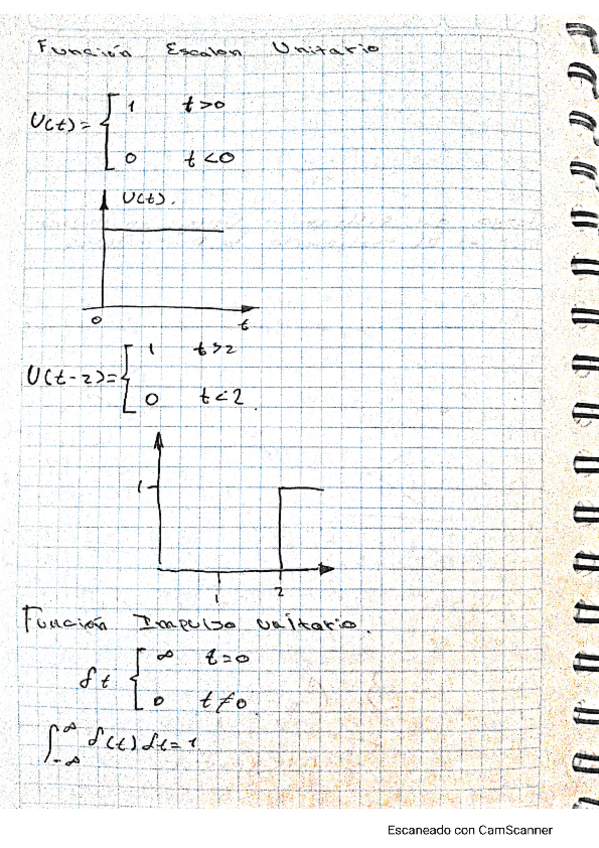 Función Escalon Unitario
U(t)= { 1 t>0
0 t<0
U(t).
0 t
U(t-2)= { 1 t>2
0 t<2
1
1 2
Función Impulso unitario.
δt { ∞ t=0
0 t≠0
∫_{-∞}^{∞} δ(t) dt = 1
Escaneado con CamScanner